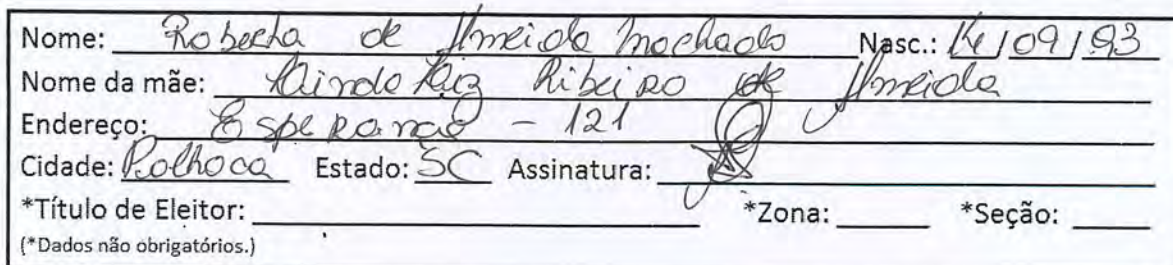 Nome: Roberta de Almeida Machado Nasc.: 14/09/93
Nome da mãe: Luiz Ribeiro de Almeida
Endereço: Esperança - 121
Cidade: Palhoça Estado: SC Assinatura:
*Título de Eleitor: *Zona: *Seção:
(*Dados não obrigatórios.)